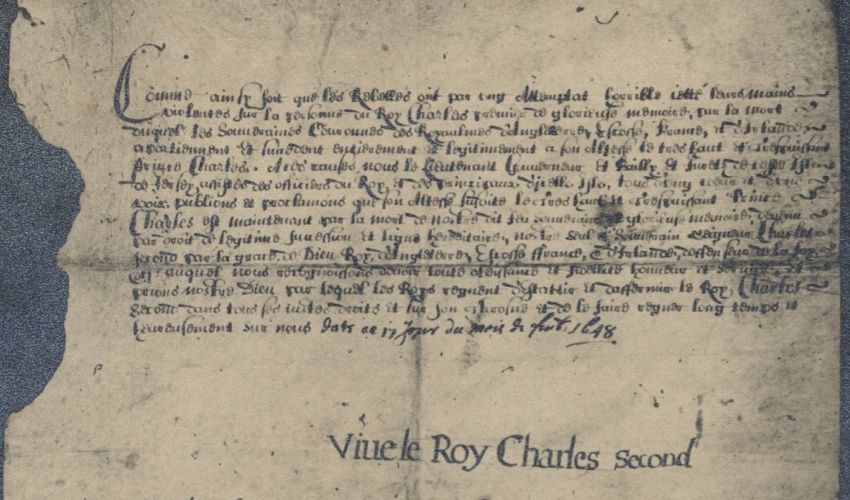 Comme ainsy soit que les Rebelles ont par ung Attemptat horrible jetté leurs mains
violentes sur la personne du Roy Charles premier de glorieuse memoire, par la mort
duquel les Souveraines Couronnes des Royaulmes d'Angleterre, Escosse, France, et d'Irlande
apartiennent et succedent entierement et legitimement a son Altesse le tres haut et trespuissant
Prince Charles. A ces causes nous le Lieutenant Gouverneur et Bailly et Iurets de ceste Isle
de Jersey, assistes des officiers du Roy, et des principaux d'icelle Isle, tous d'ung coeur et d'une
voix publions et proclamons que son Altesse le tres haut et trespuissant Prince
Charles est maintenant par la mort de nostre dit feu souverain de glorieuse memoire, devenu
par droit de legitime succession et ligne hereditaire, nostre seul Souverain Seigneur Charles
second par la grace de Dieu Roy d'Angleterre, Escosse ffrance, et d'Irlande, deffenseur de la foy,
auquel nous recognoissons devoir toute obeissance et fidelité honneur et service, et
prions nostre Dieu par lequel les Roys regnent d'establir et d'affermir le Roy, Charles
second dans tous ses justes droits et sur son throsne et de le faire regner long temps et
heureusement sur nous date ce 17 jour du mois de 1648
Viue le Roy Charles Second